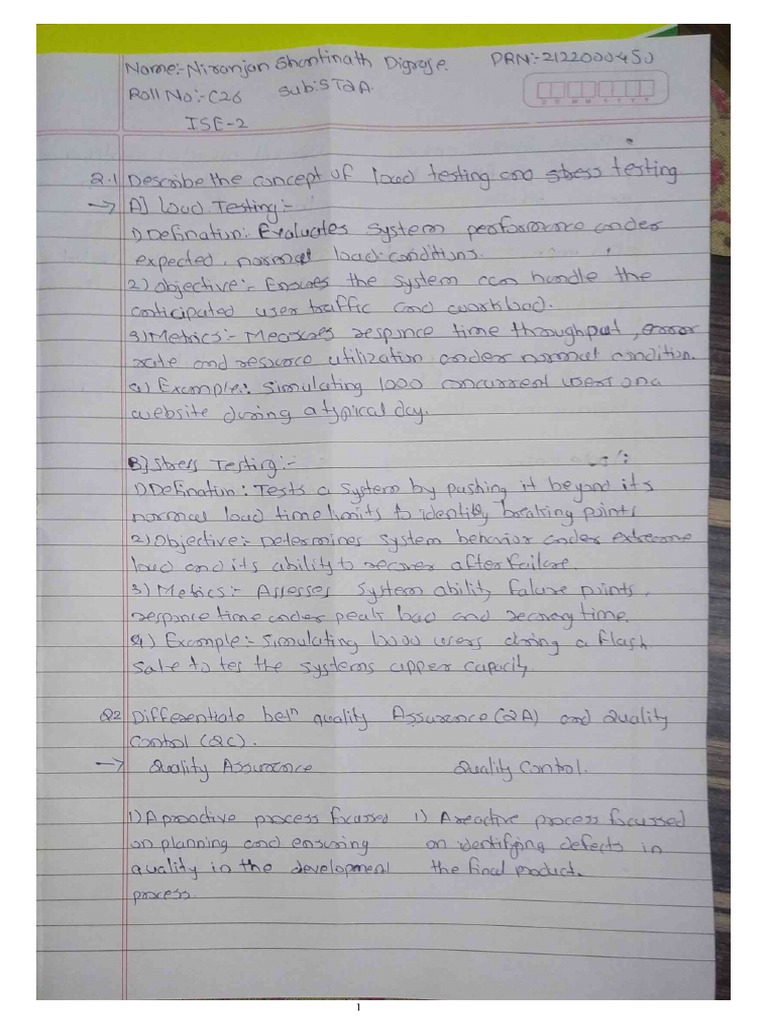 Name:- Niranjan Shantinath Digraje. PRN:- 2122000450
Roll No:- C26 Sub: STQA.
ISE-2
Q.1 Describe the concept of load testing and stress testing
→ A] Load Testing:-
1) Defination: Evaluates system performance under
expected, normal load conditions.
2) Objective:- Ensures the system can handle the
anticipated user traffic and workload.
3) Metrics:- Measures responce time throughput, error
rate and resource utilization under normal condition.
4) Example: Simulating 1000 concurrent users on a
website during a typical day.
B] Stress Testing:-
1) Defination: Tests a system by pushing it beyond its
normal load time limits to identify breaking points
2) Objective:- Determines system behavior under extreme
load and its ability to recover after failure.
3) Metrics:- Assesses system ability failure points,
responce time under peak load and recovery time.
4) Example:- Simulating 10000 users during a flash
sale to tes the systems upper capacity.
Q2 Differentiate betn quality Assurence (QA) and Quality
Control (QC).
→ Quality Assurence Quality Control.
1) A proactive process focussed 1) A reactive process focussed
on planning and ensuring on identifying defects in
quality in the development the final product.
process.
1